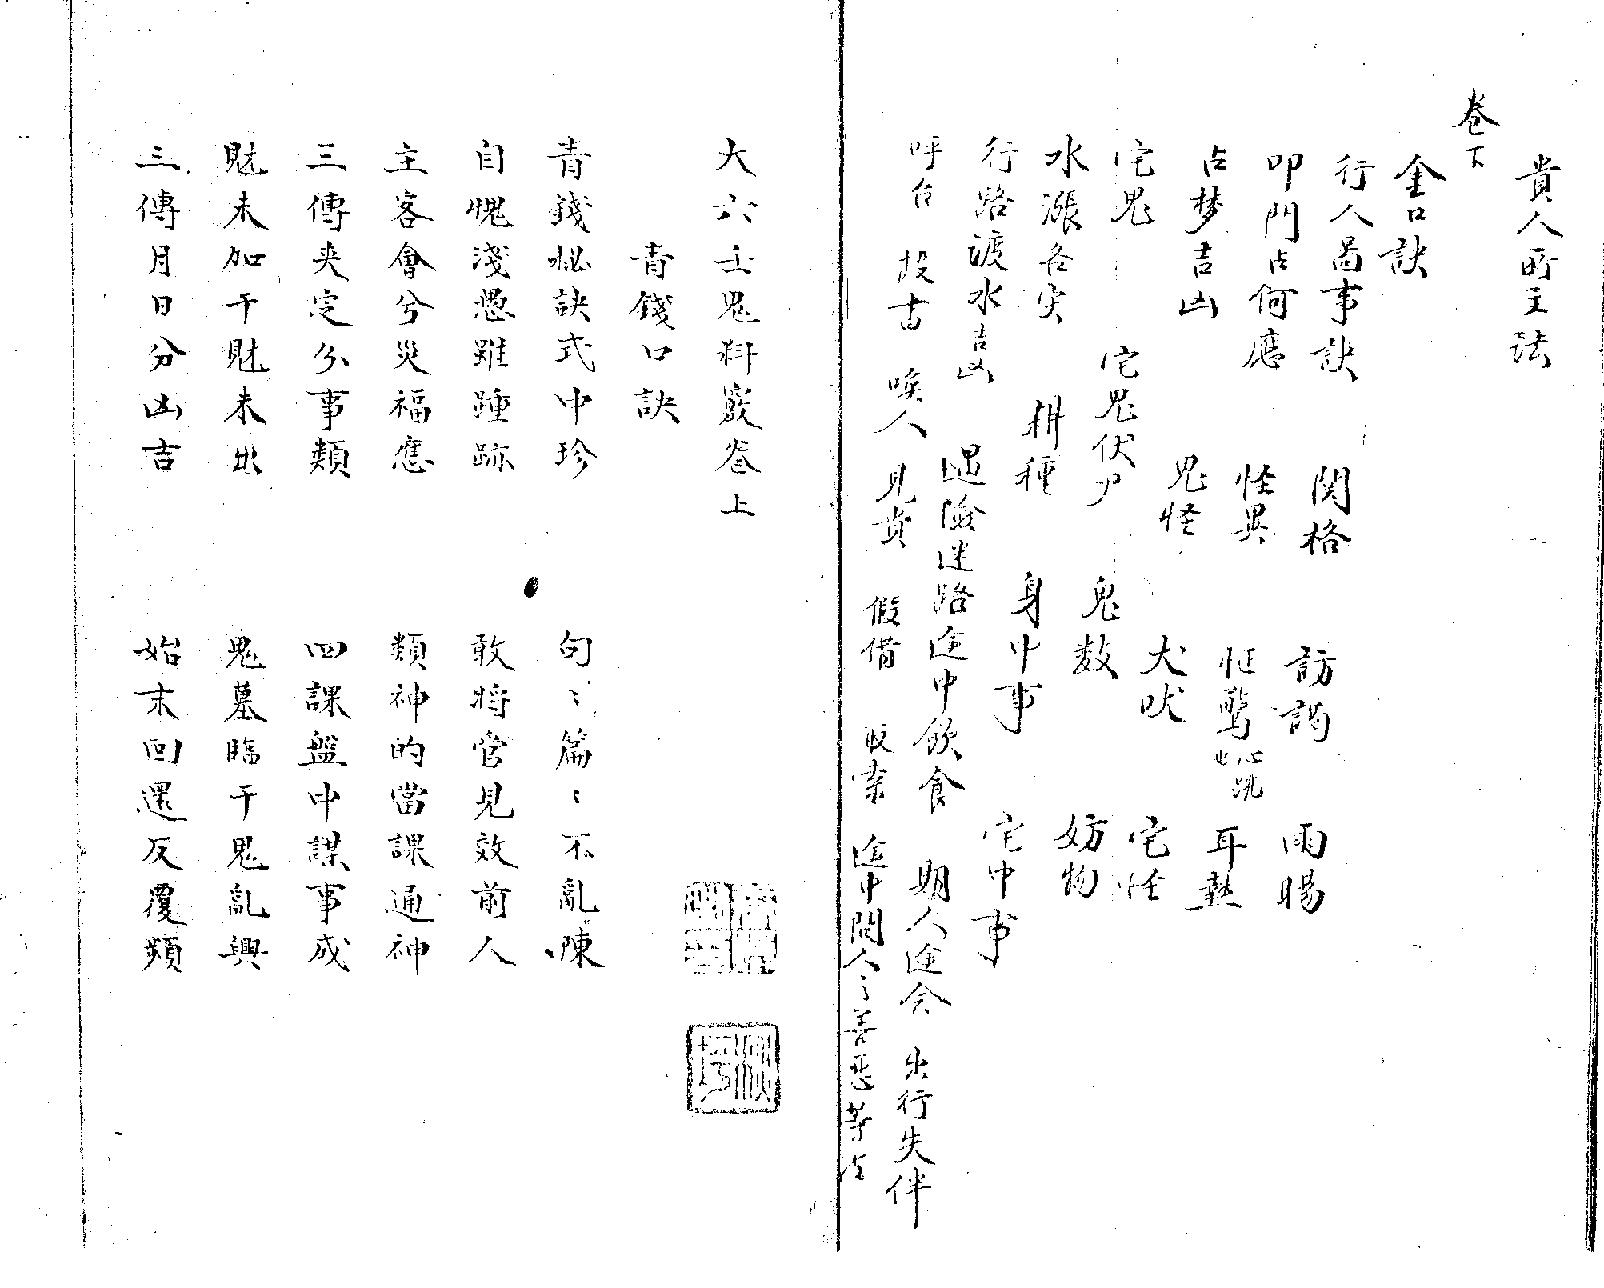 貴人所主法
卷下
金口訣
行人啚事訣 関格 訪謁 雨暘
叩門占何應 怪異 怔驚 心跳 耳熱
占梦吉凶 鬼怪 犬吠 宅怪
宅鬼 宅鬼伏尸 鬼数 妨物
水漲各灾 耕種 身中事 宅中事
行路渡水吉凶 遇險迷路途中飲食 期人途会 出行失伴
呼召 投古 喚人 見貴 假借 取索 途中問人之善惡等占
大六壬鬼料竅卷上
青錢口訣
青錢秘訣式中珍 句〻篇〻不亂陳
自愧淺愚雖踵跡 敢將管見效前人
主客會兮災福應 類神的當課通神
三傳夾定分事類 四課盤中謀事成
財未加干財未出 鬼墓臨干鬼亂興
三傳月日分凶吉 始末回還反覆類